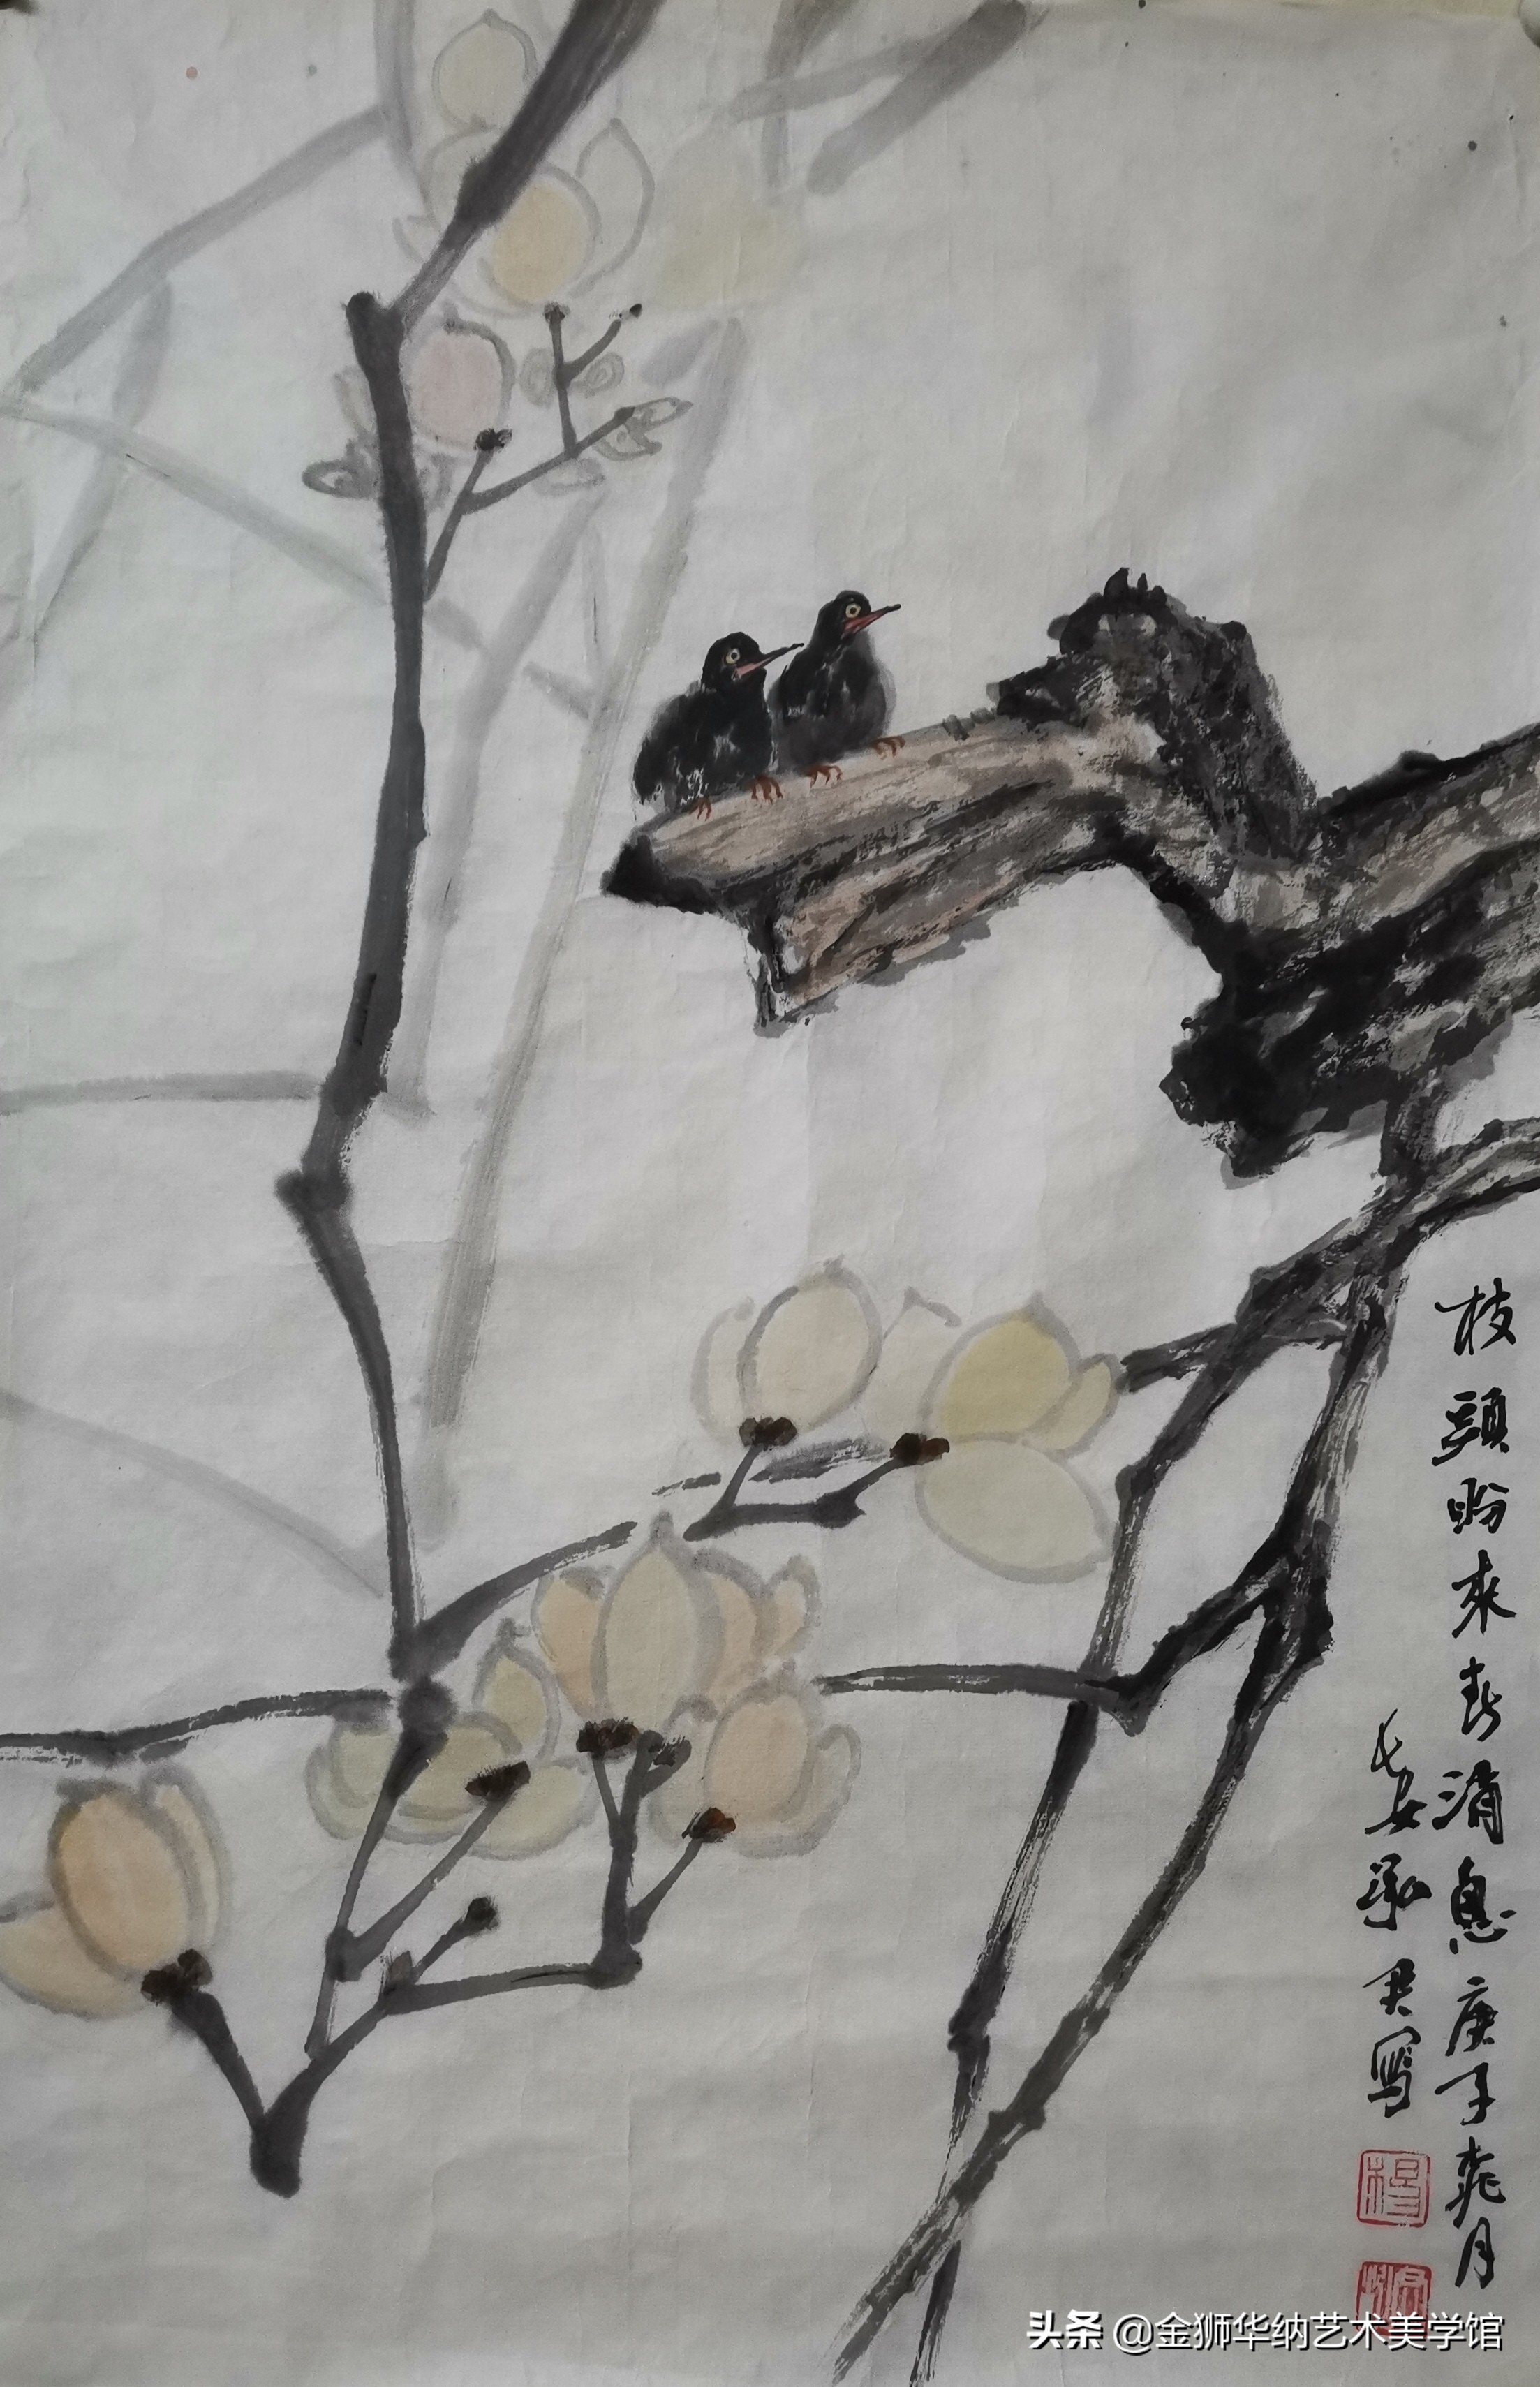 枝頭盼來春消息庚子桃月
長安承君寫
头条 @金狮华纳艺术美学馆